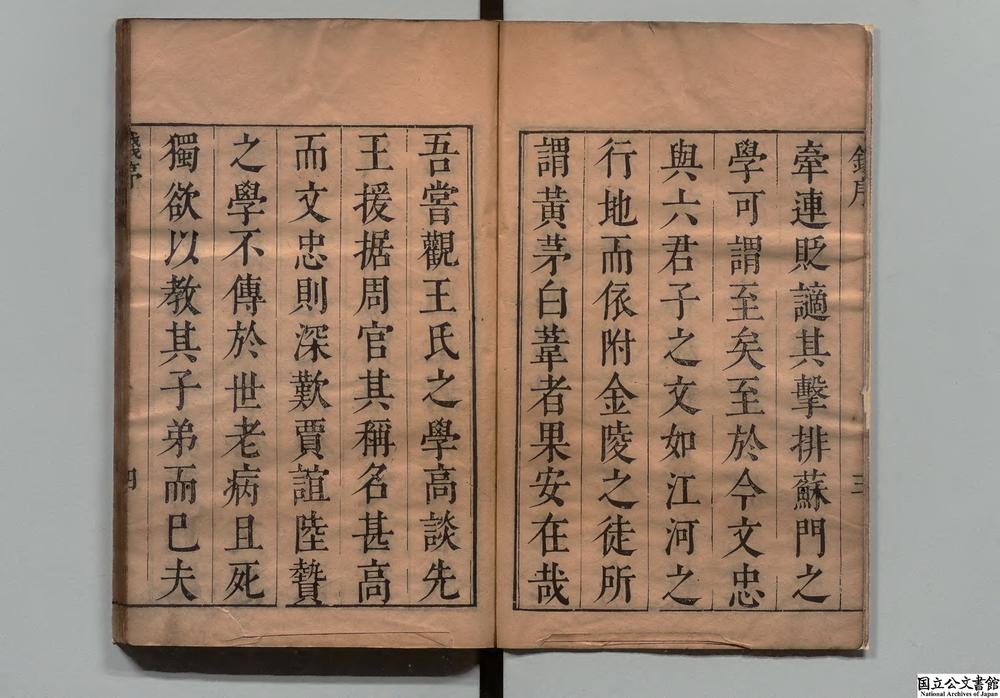 牽連貶謫其擊排蘇門之
學可謂至矣至於今文忠
與六君子之文如江河之
行地而依附金陵之徒所
謂黃茅白葦者果安在哉
吾嘗觀王氏之學高談先
王援据周官其稱名甚高
而文忠則深歎賈誼陸贄
之學不傳於世老病且死
獨欲以教其子弟而已夫
国立公文書館
National Archives of Japan